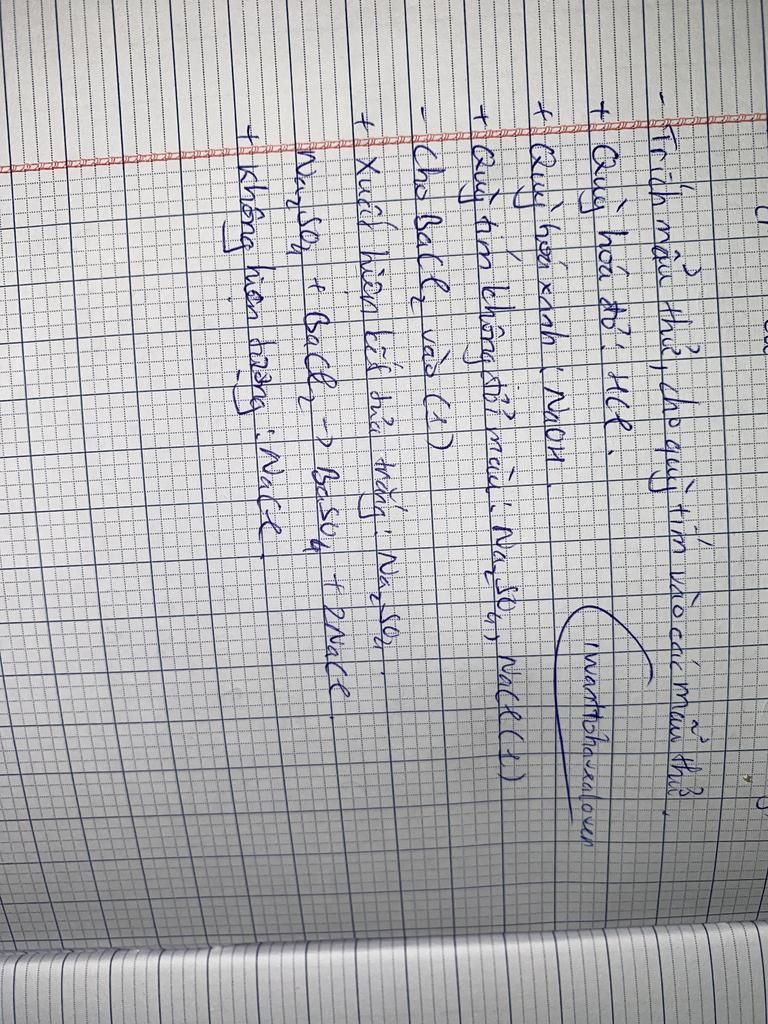 - Trích mẩu thử, cho quỳ tím vào các mẩu thử.
+ Quỳ hoá đỏ: HCl.
+ Quỳ hoá xanh: NaOH.
iwanttohavealover
+ Quỳ tím không đổi màu: Na₂SO₄, NaCl (1)
- Cho BaCl₂ vào (1)
+ Xuất hiện kết tủa trắng: Na₂SO₄.
Na₂SO₄ + BaCl₂ → BaSO₄ + 2NaCl.
+ Không hiện tượng: NaCl.